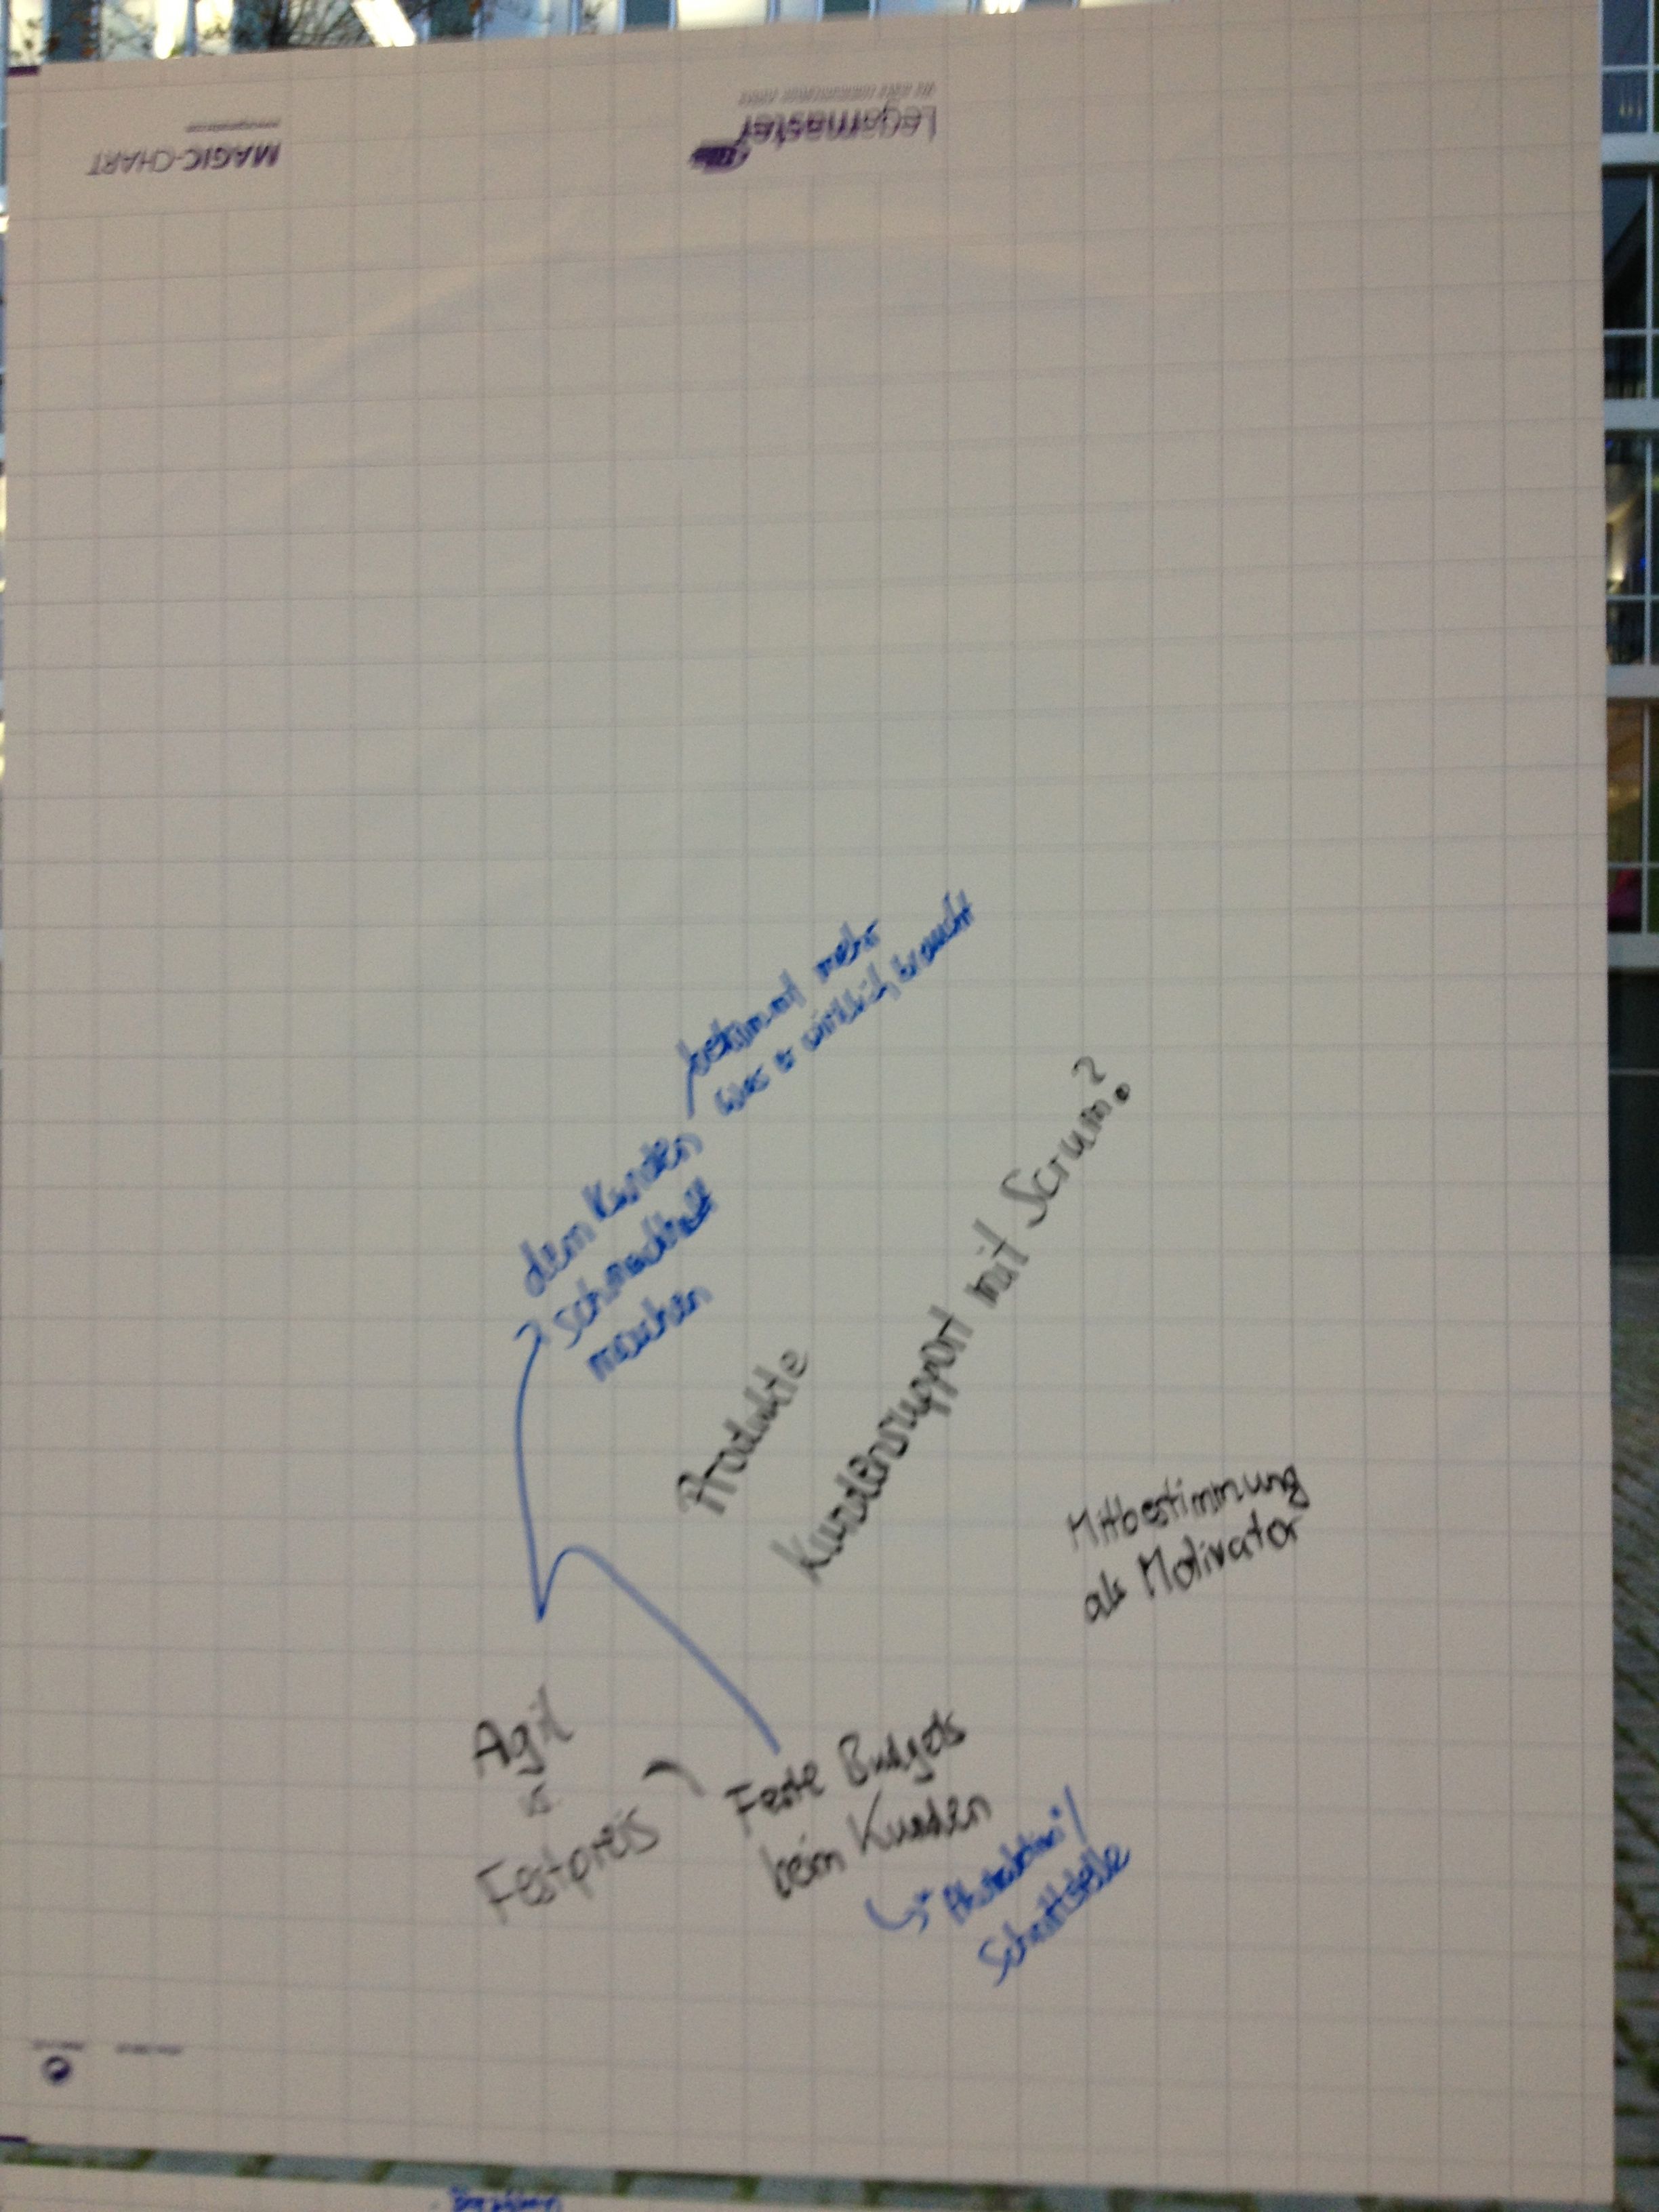 MAGIC-CHART
Legamaster
bekommt mehr
was er wirklich braucht
dem Kunden
schmackhaft
machen
Produkte
Kundensupport mit Scrum?
Mitbestimmung
als Motivator
Agil
vs.
Festpreis
Feste Budgets
beim Kunden
Abstraktion /
Schnittstelle